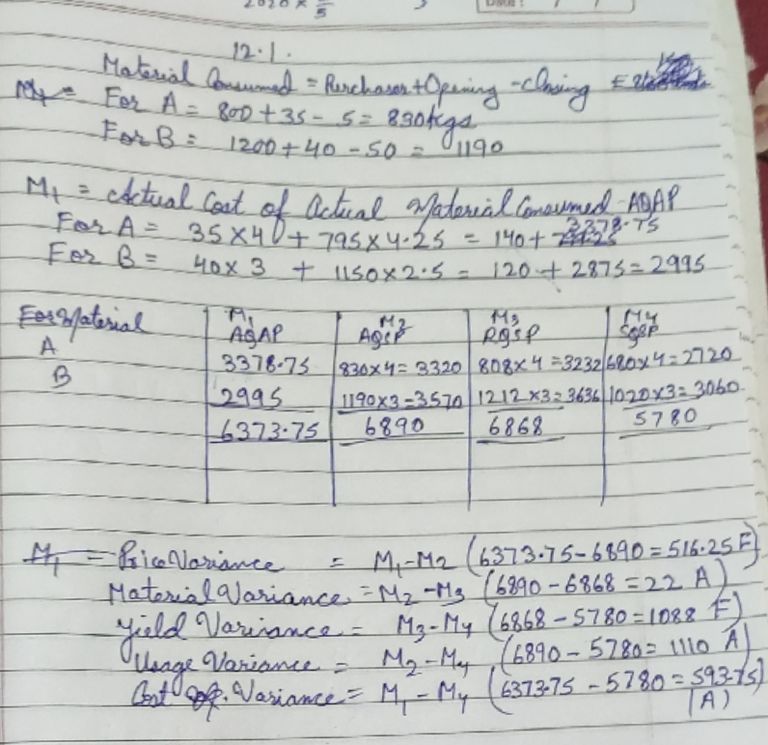 2020 × 3/5
12.1.
Material Consumed = Purchases + Opening - closing
For A = 800 + 35 - 5 = 830 kgs
For B = 1200 + 40 - 50 = 1190
M1 = Actual Cost of Actual Material Consumed - AQAP
For A = 35 × 4 + 795 × 4.25 = 140 + 3378.75
For B = 40 × 3 + 1150 × 2.5 = 120 + 2875 = 2995
For Material M1 AQAP M2 AQSP M3 RQSP M4 SQSP
A 3378.75 830×4 = 3320 808×4 = 3232 680×4 = 2720
B 2995 1190×3 = 3570 1212×3 = 3636 1020×3 = 3060
6373.75 6890 6868 5780
Price Variance = M1 - M2 (6373.75 - 6890 = 516.25 F)
Material Variance = M2 - M3 (6890 - 6868 = 22 A)
Yield Varinance = M3 - M4 (6868 - 5780 = 1088 F)
Usage Variance = M2 - M4 (6890 - 5780 = 1110 A)
Cost Variance = M1 - M4 (6373.75 - 5780 = 593.75)
(A)